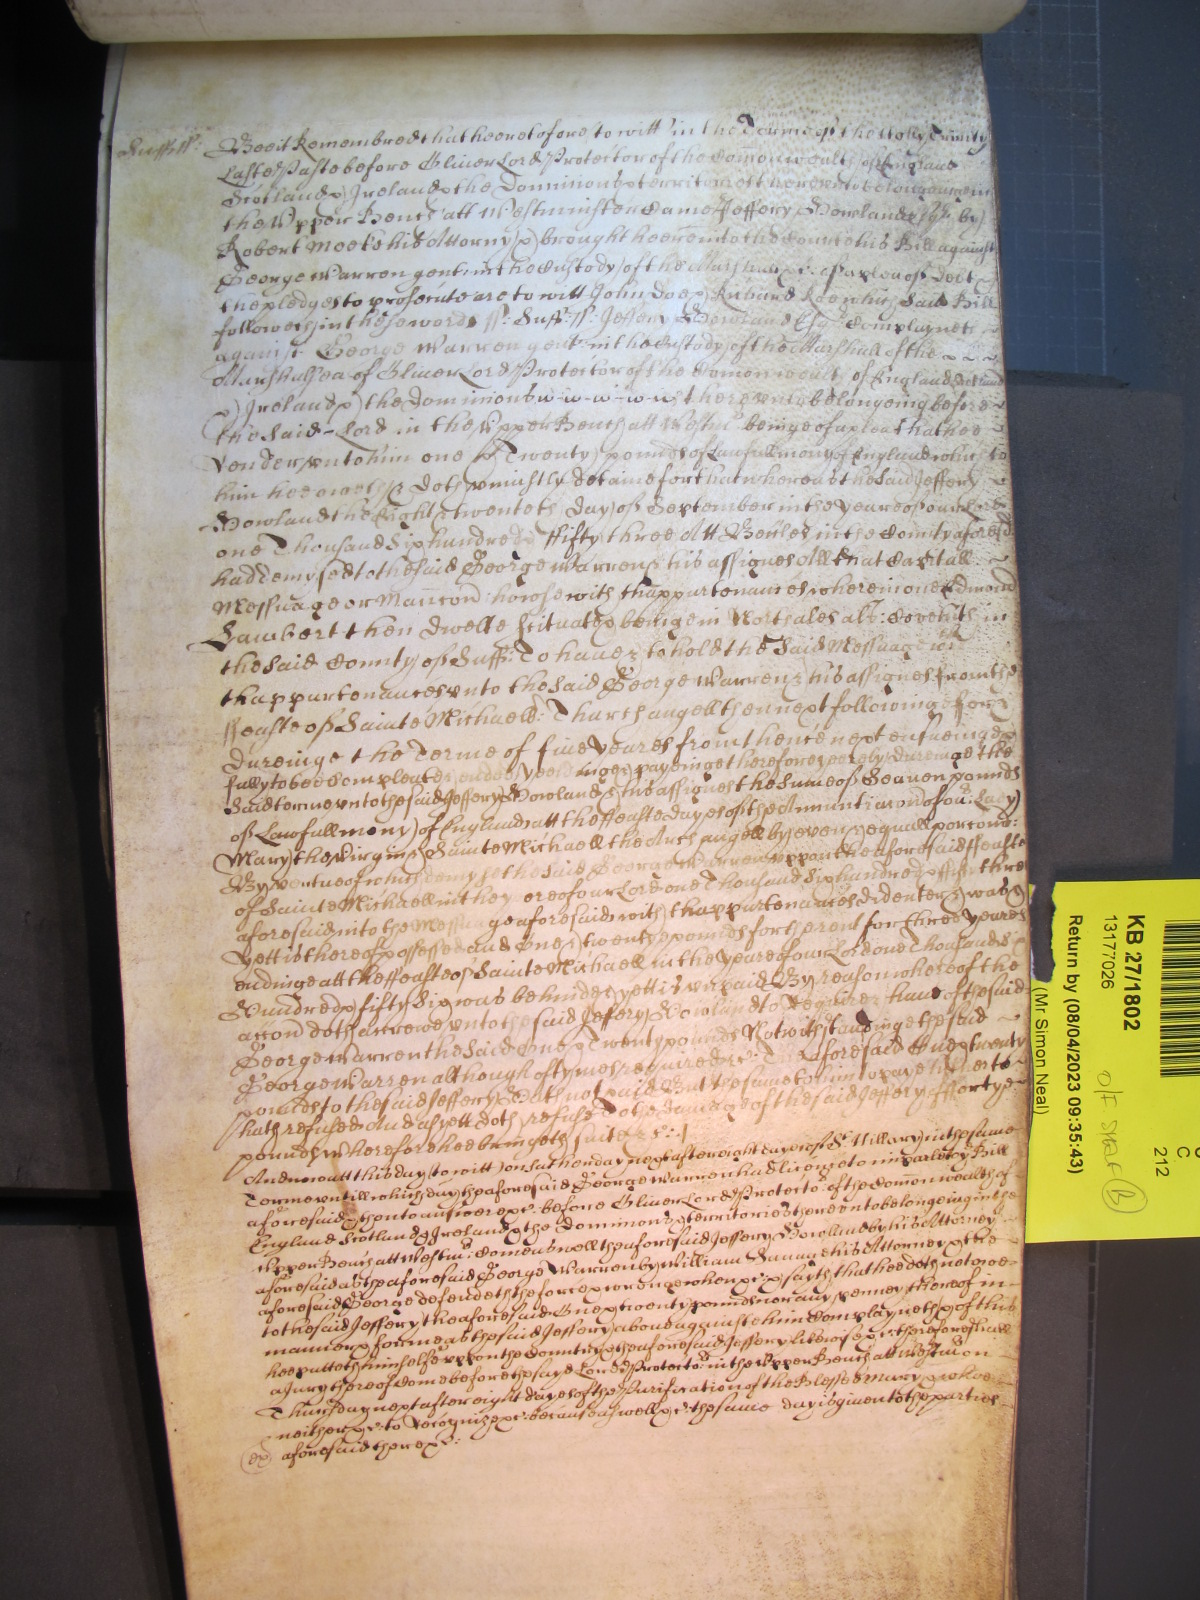 Suff: ss: Bee it Remembred that heeretofore to witt in the Terme of the holy Trinity
Last Paste before Oliver Lord Protector of the Comonwealth of England
Scotland & Ireland & the Dominions & territories thereunto belongeinge in
the Upper Bench att Westminster Came Jeffery Howland Esqr by
Robert Meeke his Attorny & brought heere into the Court his Bill against
George Warren gent in the Custody of the Marshall &c: of a plea of Debt
the pledges to prosecute are to witt John Doe & Richard Roe which said Bill
followeth in these words ss: Suff: ss: Jeffery Howland Esqr Complayneth
against George Warren gent in the Custody of the Marshall of the
Marshalsea of Oliver Lord Protector of the Comonwealth of England Scotland
& Ireland & the Dominions thereunto belongeing before
the said Lord in the Upper Bench att Westmr beinge of a plea that hee
render unto him one & Twenty pounds of Lawfull mony of England which to
him hee oweth & doth uniustly detaine for that whereas the said Jeffery
Howland the Eight & twenteth day of September in the yeare of our Lord
one Thousand Six hundred & ffifty three Att in the County aforesd
had demysed to the said George Warren & his assignes All that Capitall
Messuage or Mancon howse with thappurtenances wherein one Edmond
Lambert then dwelte scituate & beinge in alt: in
the said County of Suff: To have & to hold the said Messuage with
thappurtenances unto the said George Warren & his assignes from the
ffeaste of Sainte Michaell Tharchangell then next following for &
dureinge the Terme of five yeares from thence next ensueinge &
fully to bee Compleate & ended yeeldinge & payeinge therefore yearely dureinge the
said terme unto the said Jeffery Howland & his assignes the sume of Seaven pounds
of Lawfull mony of England att the ffeaste dayes of the Annunciacon of our Lady
Mary the Virgin & Sainte Michaell the Archangell by even & equall porcons:
By vertue of which demyse the said George Warren uppon the aforesaid ffeaste
of Sainte Michaell in the yeare of our Lord one Thousand Six hundred & ffifty three
aforesaid into the Messuage aforesaid with thappurtenances did enter & was &
yett is thereof possessed and one & twenty pounds for the rent for three yeares
endinge att the ffeaste of Sainte Michaell in the yeare of our Lord one Thousand Six
Hundred & fifty Six was behinde & yett is unpaid By reason whereof the
accon doth accrewe unto the said Jeffery Howland to require & have of the said
George Warren the said one & Twenty pounds Notwithstandinge the said
George Warren although oftymes required &c: The aforesaid One & twenty
pounds to the said Jeffery hath not paid But the same to him to pay hitherto
hath refused and as yett doth refuse To the damage of the said Jeffery of ffortye
pounds wherefore hee bringeth suite &c:
And now att this day (to witt) on sathenday next after eight dayes of St: Hillary in the same
Terme untill which day the aforesaid George Warren had licence to imparle to the Bill
aforesaid & then to answere &c: before Oliver Lord Protector of the Comonwealth of
England Scotland & Ireland & the Dominions & territories thereunto belongeing in the
Upper Bench att Westmr: Comes as well the aforesaid Jeffery Howland by his Attorney
aforesaid as the aforesaid George Warren by William Savage his Attorney & the
aforesaid George defendeth the force & wronge when &c: & sayth that hee doth not owe
to the said Jeffery the aforesaid One & twenty pounds nor any penney thereof in
manner & forme as the said Jeffery above against him Complayneth & of this
hee putteth himselfe uppon the Country & the aforesaid Jeffery likewise &c: therefore lett
a Jury thereof Come before the sayd Lord Protector in the Upper Bench att Westmr on
Thursday next after eight dayes of the Purification of the Blessed Mary & whoe
neither &c: to recognize &c: because as well &c: the same day is given to the parties
aforesaid there &c:
KB 27/1802
13177026
Return by (08/04/2023 09:35:43)
(Mr Simon Neal)
C
212